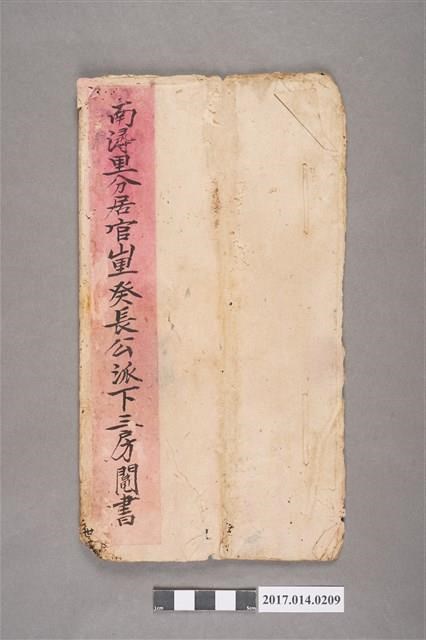 南潯里分居官崙里癸長公派下三房鬮書
世
1cm
5cm
2017.014.0209